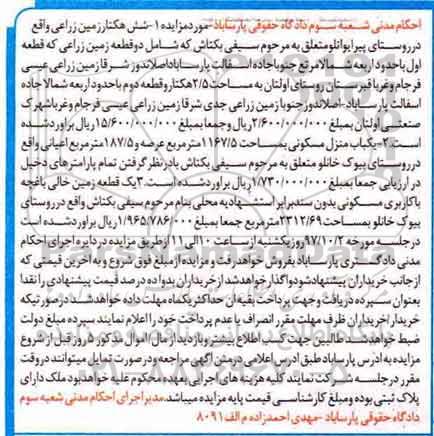 احکام مدنی شعبه سوم دادگاه حقوقی پارساباد-موردمزایده ۱-شش هکتارزمین زراعی واقع
درروستای پیرایواتلومتعلق به مرحوم سیفی بکتاش که شامل دوقطعه زمین زراعی که قطعه
اول باحدود اربعه شمالامرتع جنوباجاده اسفالت پارساباداصلاندوز شرقا زمین زراعی عیسی
فرجام وغربا قبرستان روستای اولتان به مساحت ۲/۵هکتاروقطعه دوم باحدود اربعه شمالا جاده
اسفالت پارساباد-اصلاندوزجنوبا زمین زراعی جدی شرقا زمین زراعی عیسی فرجام وغرباشهرک
صنعتی اولتان بمبلغ ۲/۶۰۰/۰۰۰/۰۰۰ریال وجمعا بمبلغ ۱۵/۶۰۰/۰۰۰/۰۰۰ریال براوردشده
است.۲-یکباب منزل مسکونی بمساحت ۱۱۶۷/۵مترمربع عرصه و۱۸۷/۵مترمربع اعیانی واقع
درروستای بیوک خانلو متعلق به مرحوم سیفی بکتاش بادرنظرگرفتن تمام پارامترهای دخیل
در ارزیابی جمعا بمبلغ ۱/۷۳۰/۰۰۰/۰۰۰ریال براوردشده است.۳یک قطعه زمین خالی باغچه
باکاربری مسکونی بدون سندبرابر استشهادیه محلی بنام مرحوم سیفی بکتاش واقع درروستای
بیوک خانلو بمساحت ۲۳۱۲/۶۹مترمربع جمعا بمبلغ ۱/۹۶۵/۷۸۶/۰۰۰ریال براورد شده است
درجلسه مورخه ۹۷/۱۰/۲روزیکشنبه ازساعت ۱۰الی۱۱ ازطریق مزایده دردایره اجرای احکام
مدنی دادگستری پارساباد بفروش خواهدرفت ومزایده ازمبلغ فوق شروع وبه اخرین قیمتی که
ازجانب خریداران پیشنهادشودواگذارخواهدشد.ازخریداران بدواده درصد قیمت پیشنهادی رانقدا
بعنوان سپرده دریافت وجهت پرداخت بقیه ان حداکثریکماه مهلت داده خواهدشددرصورتیکه
خریداراخریداران ظرف مهلت مقرر انصراف یاعدم پرداخت خود رااعلام نمایند سپرده بمبلغ دولت
ضبط خواهدشد.طالبین جهت کسب اطلاع بیشتروبازدید از مال اموال مذکور ۵روز قبل از شروع
مزایده به ادرس پارساباد طبق ادرس اعلامی درمتن آگهی مراجعه ودرصورت تمایل میتوانند دروقت
مقرر درجلسه شرکت نمایند کلیه هزینه های اجرایی بعهده محکوم علیه خواهدبود ملک دارای
پلاک ثبتی بوده ومبلغ کارشناسی قیمت پایه مزایده میباشد.مدیراجرای احکام مدنی شعبه سوم
دادگاه حقوقی پارساباد -مهدی احمدزاده م الف ۸۰۹۱